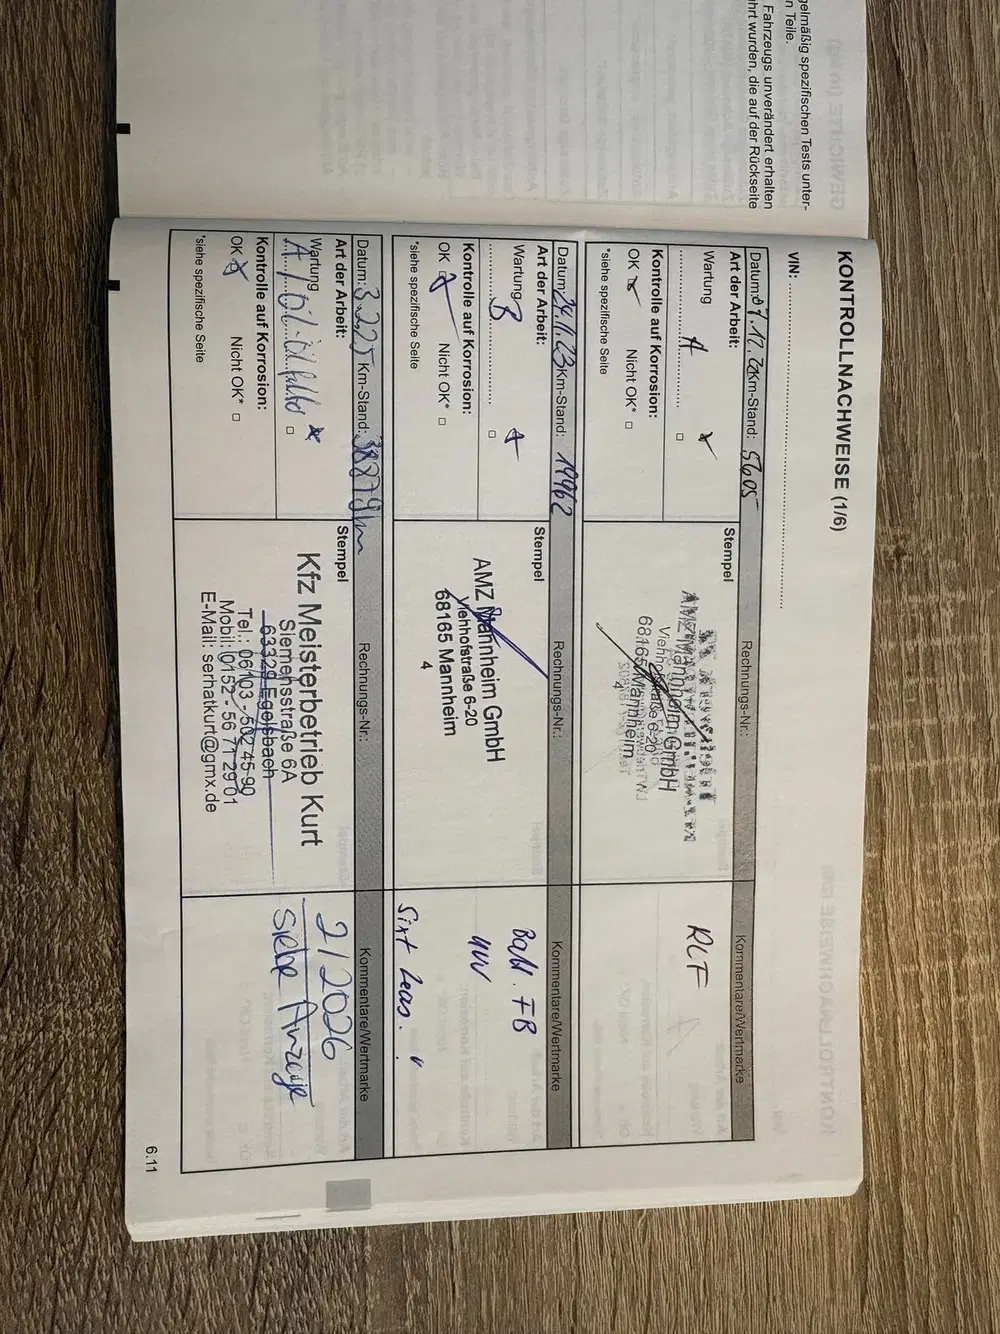 gelmäßig spezifischen Tests unter-
n Teile.
Fahrzeugs unverändert erhalten
hrt wurden, die auf der Rückseite
KONTROLLNACHWEISE (1/6)
VIN:
Datum: 07.12.22 Km-Stand: 5605
Rechnungs-Nr.:
Kommentare/Wertmarke
Art der Arbeit:
Wartung
A
Kontrolle auf Korrosion:
OK Nicht OK*
*siehe spezifische Seite
Stempel
AMZ Mannheim GmbH
Viehhofstraße 6-20
68165 Mannheim
4
RLF
Datum: 24.11.23 Km-Stand: 19962
Rechnungs-Nr.:
Kommentare/Wertmarke
Art der Arbeit:
Wartung B
Kontrolle auf Korrosion:
OK Nicht OK*
*siehe spezifische Seite
Stempel
AMZ Mannheim GmbH
Viehhofstraße 6-20
68165 Mannheim
4
FB
Sixt Leas.
Datum: 3.2.25 Km-Stand: 38879km
Rechnungs-Nr.:
Kommentare/Wertmarke
Art der Arbeit:
Wartung
A / Öl-Ölfilter
Kontrolle auf Korrosion:
OK Nicht OK*
*siehe spezifische Seite
Stempel
Kfz Meisterbetrieb Kurt
Siemensstraße 6A
63329 Egelsbach
Tel.: 06103 - 502 45 90
Mobil: 0152 - 56 71 29 01
E-Mail: serhatkurt@gmx.de
2/2026
Siehe Anzeige
6.11